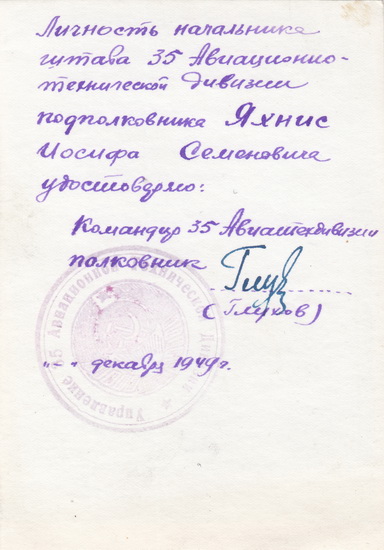 Личность начальника
штаба 35 Авиационно-
технической дивизии
подполковника Яхнис
Иосифа Семеновича
удостоверяю:
Командир 35 Авиатехдивизии
полковник Глух
(Глухов)
"-" декабрь 1949г.
Управление 35 Авиационной Технической Дивизии